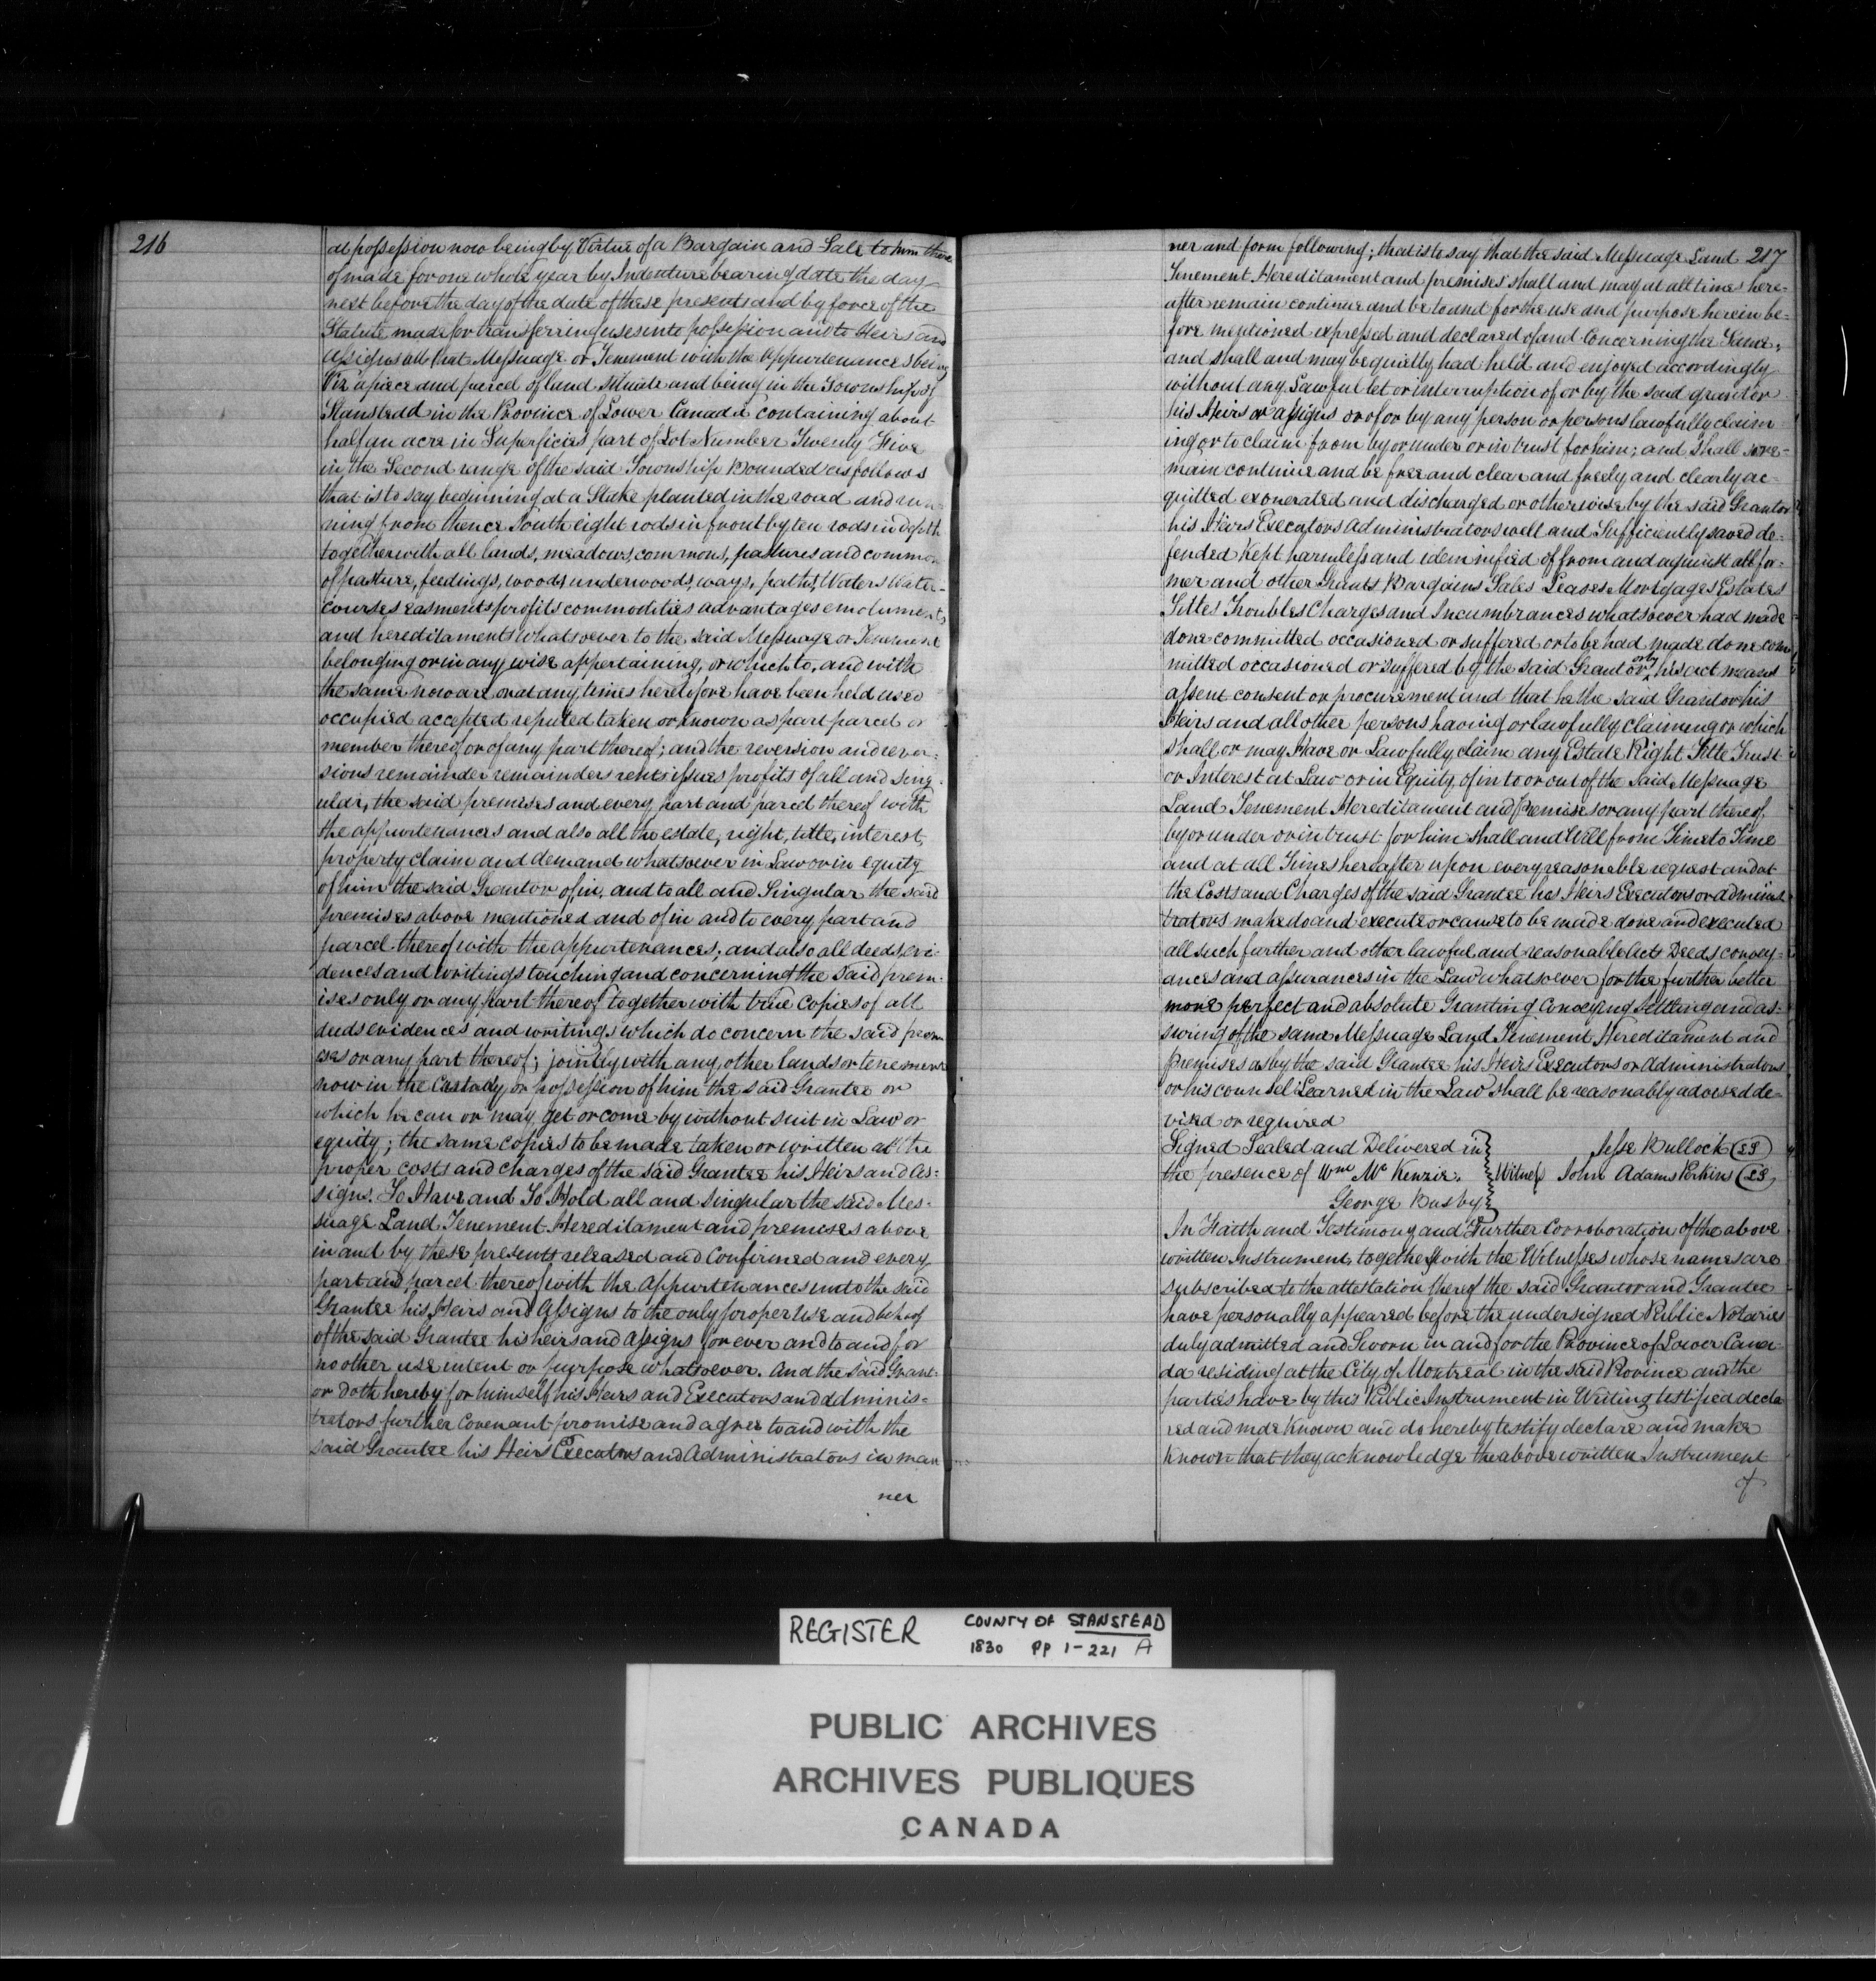 216
al possession now being by Virtue of a Bargain and Sale to him there
of made for one whole year by Indenture bearing date the day
next before the day of the date of these presents and by force of the
Statute made for transferring uses into possession and to Heirs and
Assigns all that Messuage or Tenement with the Appurtenances being
Viz a piece and parcel of land situate and being in the Township of
Stanstead in the Province of Lower Canada containing about
half an acre in Superficies part of Lot Number Twenty Five
in the Second range of the said Township Bounded as follows
that is to say beginning at a Stake planted in the road and run
ning from thence South eight rods in front by ten rods in depth
together with all lands, meadows, commons, pastures and common
of pasture, feedings, woods underwoods, ways, paths, Waters Water-
courses easments profits commodities advantages emoluments
and hereditaments whatsoever to the said Messuage or Tenement
belonging or in any wise appertaining, or which to, and with
the same now are or at any times heretofore have been held used
occupied accepted reputed taken or known as part parcel or
member thereof or of any part thereof; and the reversion and rever-
sions remainder remainders rents issues profits of all and sing-
ular, the said premises and every part and parcel thereof with
the appurtenances and also all the estate, right, title, interest,
property claim and demand whatsoever in Law or in equity
of him the said Grantor of, in, and to all and Singular the said
premises above mentioned and of in and to every part and
parcel thereof with the appurtenances; and also all deeds evi-
dences and writings touching and concerning the said prem-
ises only or any part thereof together with true Copies of all
deeds evidences and writings which do concern the said prem
ises or any part thereof; jointly with any other lands or tenement
now in the Custody or possession of him the said Grantee or
which he can or may get or come by without suit in Law or
equity; the same copies to be made taken or written at the
proper costs and charges of the said Grantee his Heirs and As-
signs. To Have and To Hold all and singular the said Mes-
suage Land Tenement Hereditament and premises above
in and by these presents released and Confirmed and every
part and parcel thereof with the appurtenances unto the said
Grantee his Heirs and Assigns to the only proper use and behoof
of the said Grantee his heirs and assigns for ever and to and for
no other use intent or purpose whatsoever. And the said Grant-
or doth hereby for himself his Heirs and Executors and adminis-
trators further Covenant promise and agree to and with the
said Grantee his Heirs Executors and Administrators in man
ner
ner and form following; that is to say that the said Messuage Land 217
Tenement Hereditament and premises shall and may at all times here-
after remain continue and be to and for the use and purpose herein be-
fore mentioned expressed and declared of and Concerning the Same;
and shall and may be quietly had held and enjoyed accordingly
without any Lawful let or interruption of or by the said grantor
his Heirs or assigns or of or by any person or persons lawfully claim
ing or to claim from by or under or in trust for him; and shall so re-
main continue and be free and clear and freely and clearly ac-
quitted exonerated and discharged or otherwise by the said Grantor
his Heirs Executors Administrators well and Sufficiently saved de-
fended Kept harmless and idemnified of from and against all for-
mer and other Grants Bargains Sales Leases Mortgages Estates
Titles Troubles Charges and Incumbrances whatsoever had made
done committed occasioned or suffered or to be had made done com
mitted occasioned or suffered by the said Grantor or by his act means
assent consent or procurement and that he the said Grantor his
Heirs and all other persons having or lawfully claiming or which
shall or may Have or Lawfully claim any Estate Right Title Trust
or Interest at Law or in Equity of in to or out of the said Messuage
Land Tenement Hereditament and Premises or any part thereof,
by or under or in trust for him shall and Will from Time to Time
and at all Times hereafter upon every reasonable request and at
the Costs and Charges of the said Grantee his Heirs Executors or adminis
trators make do and execute or cause to be made done and executed
all such further and other lawful and reasonable Acts Deeds convey-
ances and assurances in the Law whatsoever for the further better
more perfect and absolute Granting Conveying Settling and as-
suring of the same Messuage Land Tenement Hereditament and
Premises as by the said Grantee his Heirs Executors or Administrators
or his counsel Learned in the Law shall be reasonably advised de-
vised or required
Signed Sealed and Delivered in Jesse Bullock LS
the presence of Wm Mc Kenzie. Witness John Adams Perkins LS
George Busby
In Faith and Testimony and Further Corroboration of the above
written Instrument, together with the Witnesses whose names are
subscribed to the attestation thereof the said Grantor and Grantee
have personally appeared before the undersigned Public Notaries
duly admitted and Sworn in and for the Province of Lower Cana-
da residing at the City of Montreal in the said Province and the
parties have by this Public Instrument in Writing testified decla
red and mde Known and do hereby testify declare and make
Known that they acknowledge the above written Instrument
of
REGISTER COUNTY OF STANSTEAD
1830 PP 1-221 A
PUBLIC ARCHIVES
ARCHIVES PUBLIQUES
CANADA